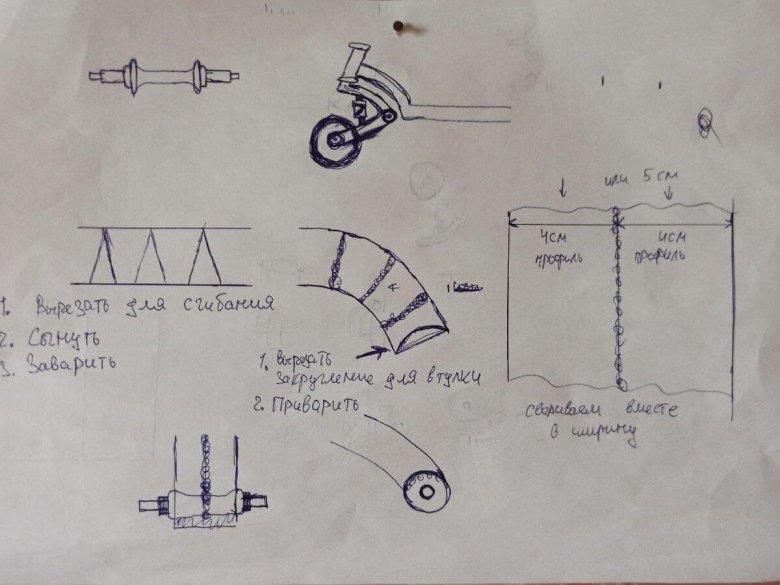 или 5 см
4см
профиль
4см
профиль
1. Вырезать для сгибания
2. Сынуть
3. Заварить
1. Вырезать
Закругление для втулки
2. Приварить
свариваем вместе
в ширину